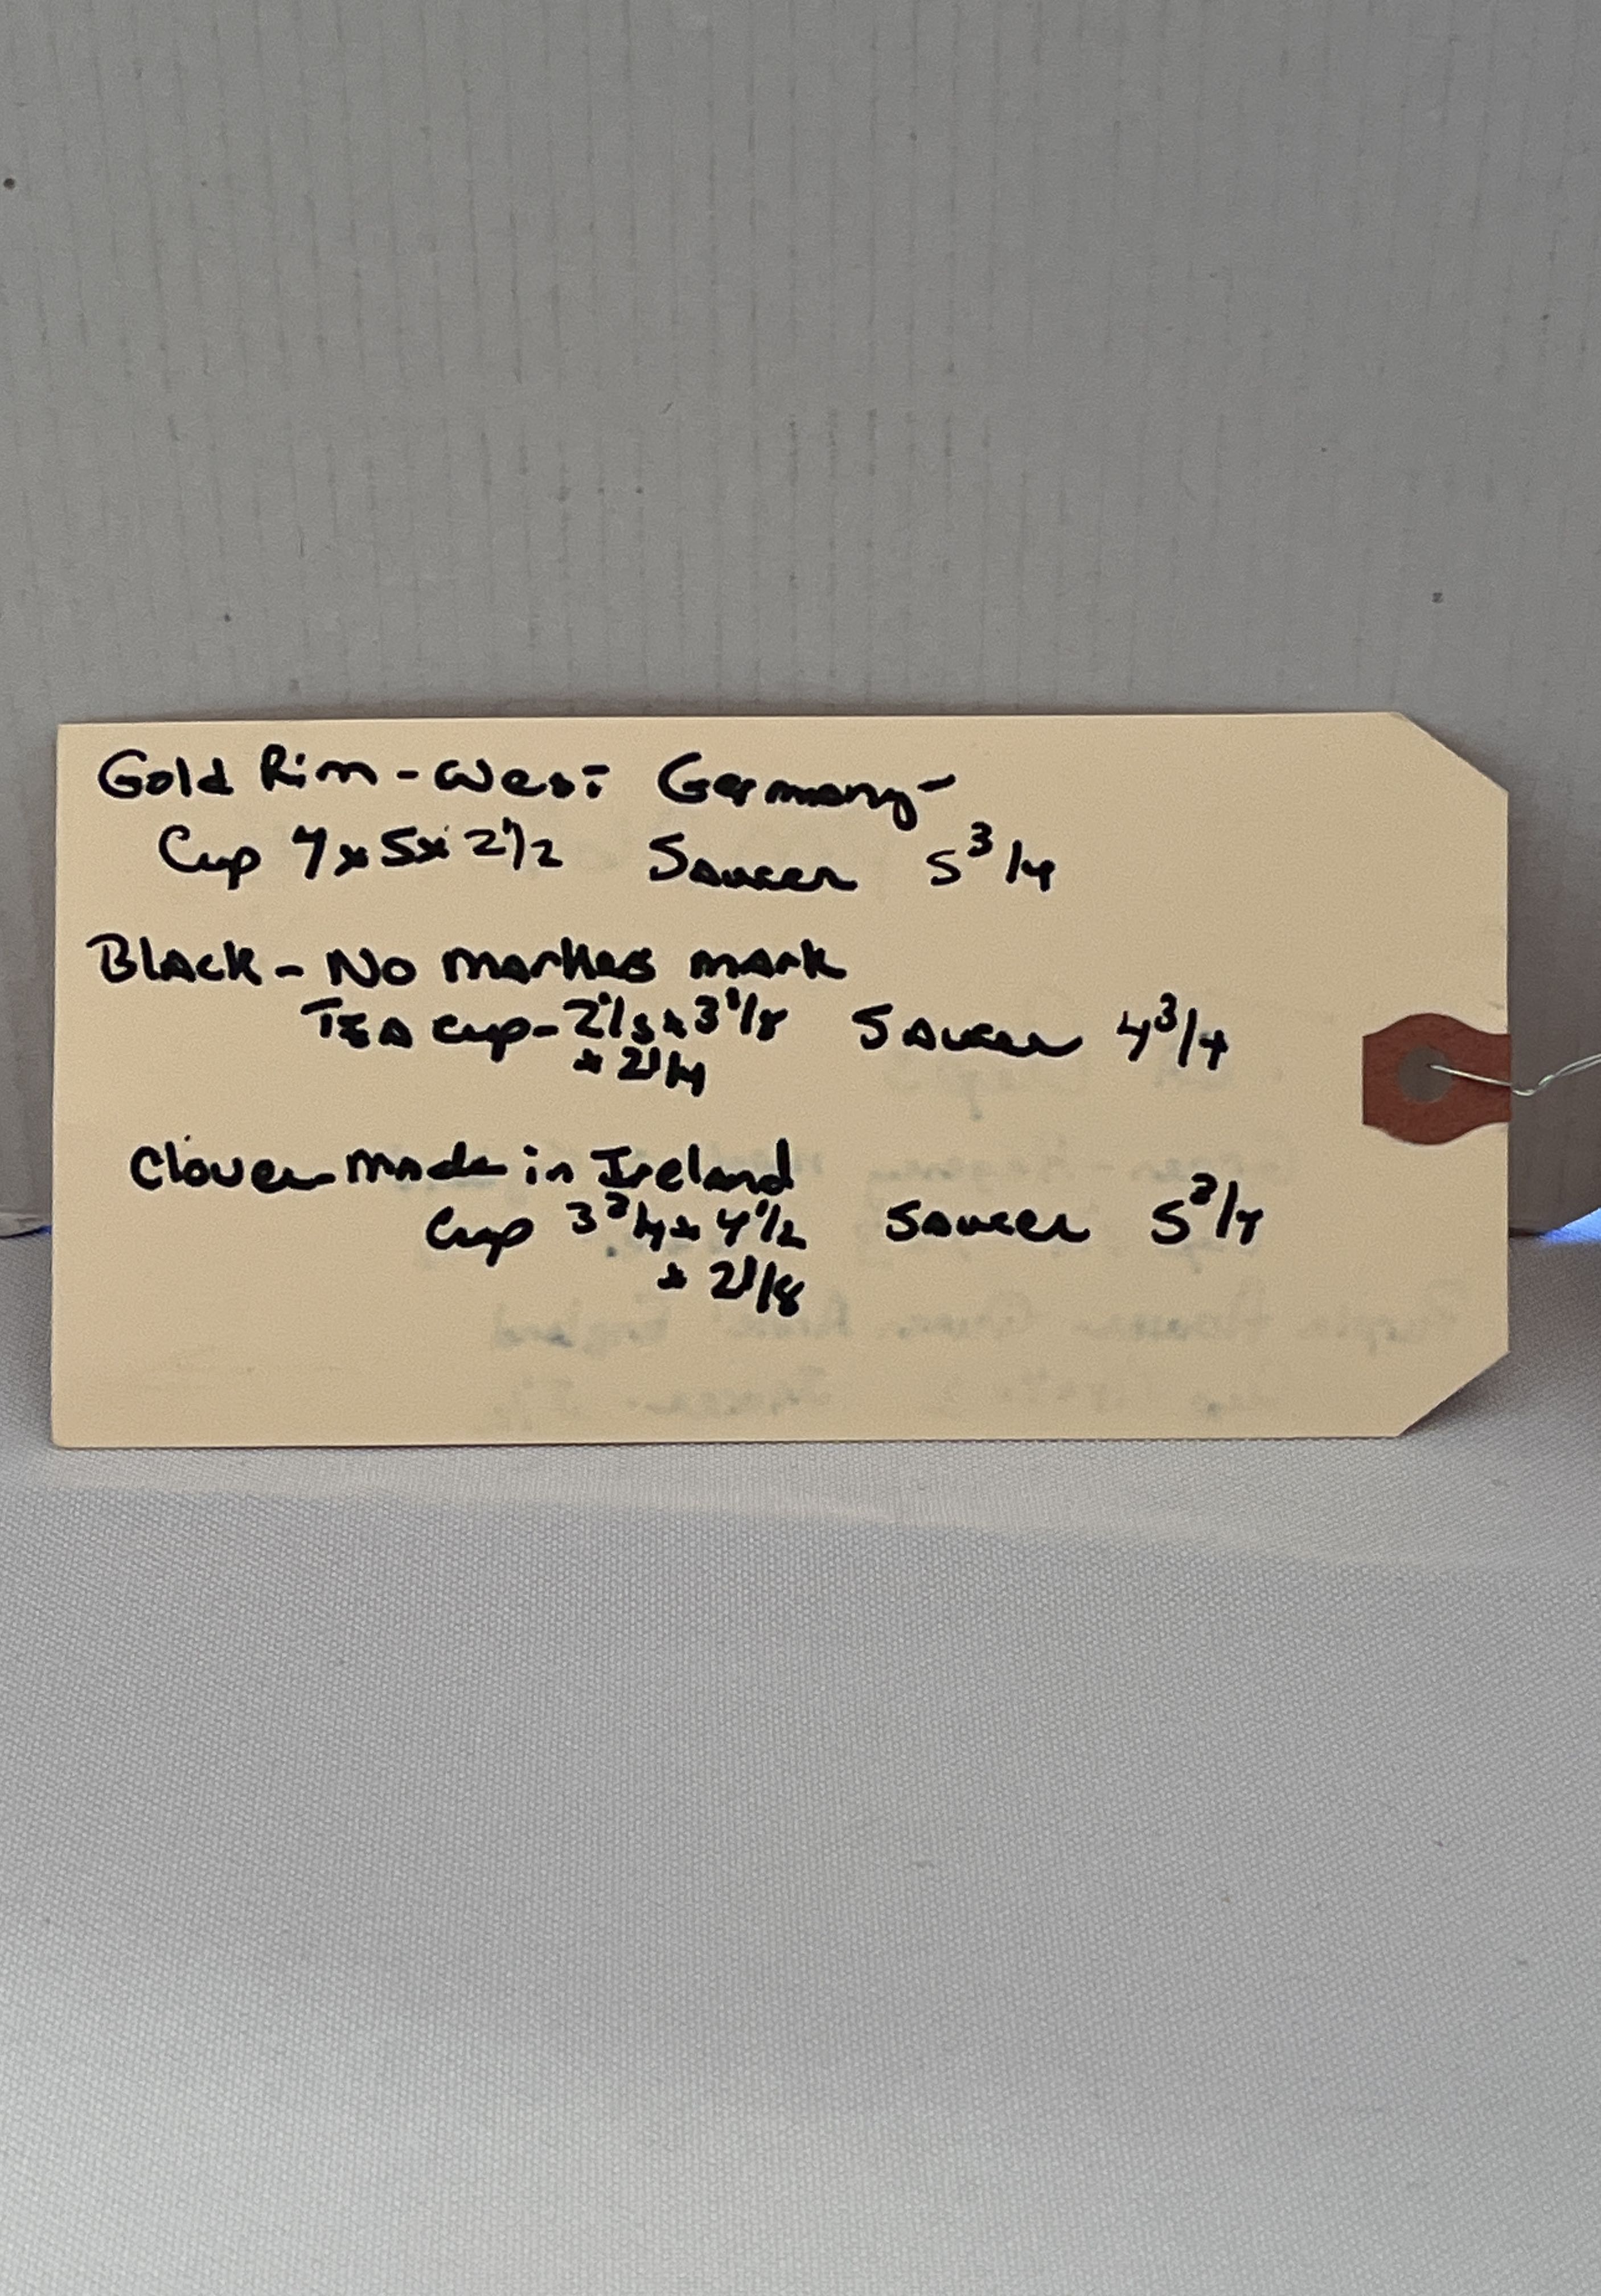 Gold Rim - West Germany -
Cup 4 x 5 x 2 1/2 Saucer 5 3/4
Black - No markers mark
TEA cup - x 3 1/8 Saucer 4 3/4
x 2 1/4
Clover made in Ireland
Cup 3 3/4 x 4 1/2 Saucer 5 3/4
x 2 1/8